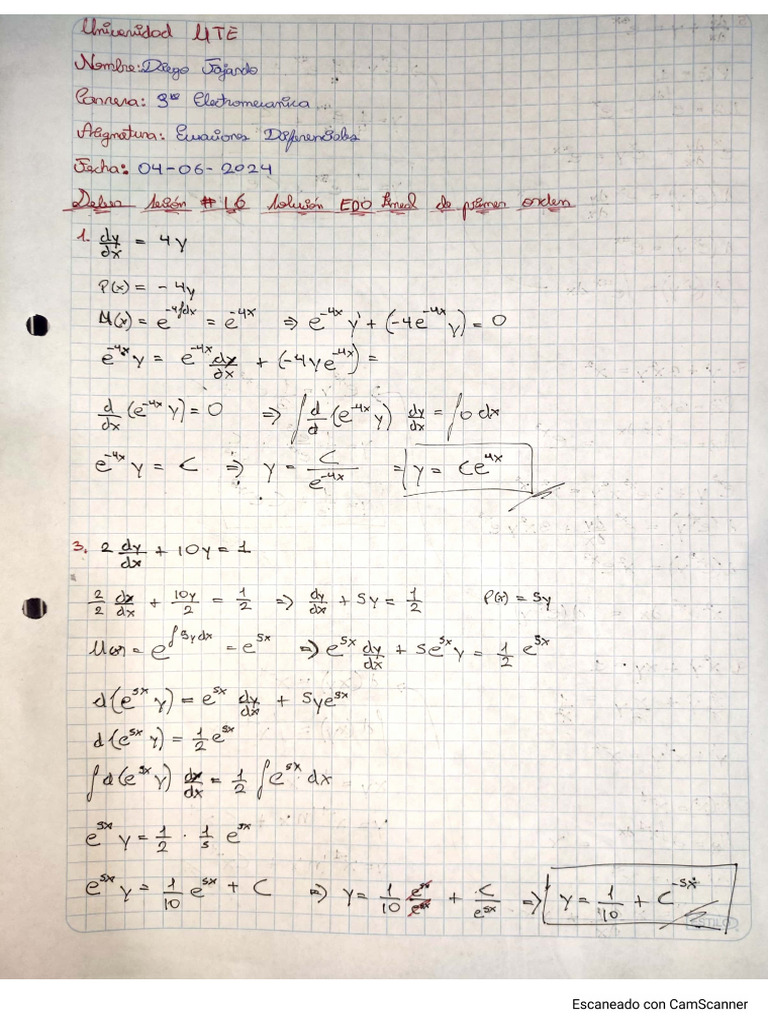 Universidad UTE
Nombre: Diego Fajardo
Carrera: 3ro Electromecanica
Asignatura: Ecuaciones Diferenciales
Fecha: 04-06-2024
Deber lesión #16 solución EDO lineal de primer orden
1. dy/dx = 4y
P(x) = -4y
M(x) = e^(-4∫dx) = e^(-4x) => e^(-4x) y' + (-4e^(-4x) y) = 0
e^(-4x) y = e^(-4x) dy/dx + (-4ye^(-4x)) =
d/dx (e^(-4x) y) = 0 => ∫ d/d (e^(-4x) y) dy/dx = ∫0 dx
e^(-4x) y = C => y = C/e^(-4x) = y = Ce^(4x)
3. 2 dy/dx + 10y = 1
2/2 dy/dx + 10y/2 = 1/2 => dy/dx + 5y = 1/2 P(x) = 5y
M(x) = e^(∫5y dx) = e^(5x) => e^(5x) dy/dx + 5e^(5x) y = 1/2 e^(5x)
d(e^(5x) y) = e^(5x) dy/dx + 5ye^(5x)
d(e^(5x) y) = 1/2 e^(5x)
∫d(e^(5x) y) dx/dx = 1/2 ∫e^(5x) dx
e^(5x) y = 1/2 · 1/5 e^(5x)
e^(5x) y = 1/10 e^(5x) + C => y = 1/10 e^(5x)/e^(5x) + C/e^(5x) => y = 1/10 + C^(-5x)
ESTILO
Escaneado con CamScanner